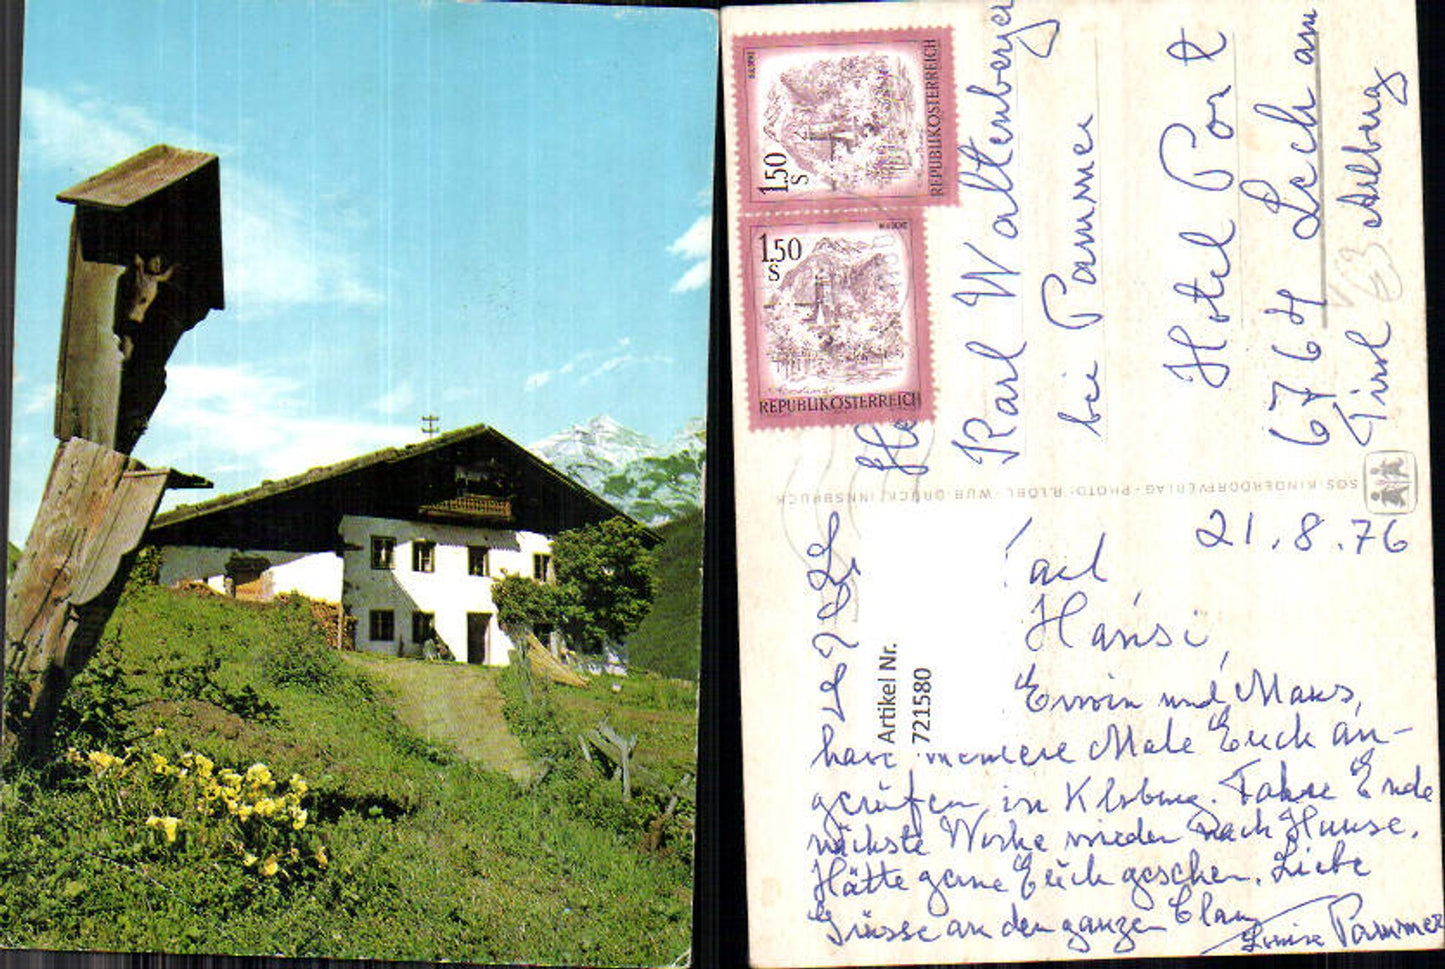 1.50
S
REPUBLIK ÖSTERREICH
1.50
S
REPUBLIK ÖSTERREICH
Karl Waltenberger
bei Pammer
Hotel Post
6764 Lech am
Arlberg
Tirol
SOS-KINDERDORFVERLAG - PHOTO: R.LÖBL - WUB-DRUCK, INNSBRUCK
21.8.76
Hansi,
Erwin und Maus,
habe mehrere Male Euch an-
gerufen in Klbburg. Fahre Ende
nächste Woche wieder nach Hause.
Hätte gerne Euch gesehen. Liebe
Grüsse an den ganzen Clan
Luise Pammer
Artikel Nr.
721580